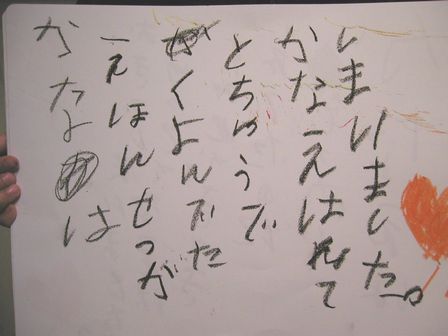 かたよは
えほんせつが
くよんでた
とちゅうで
かなえはねて
しまいました。